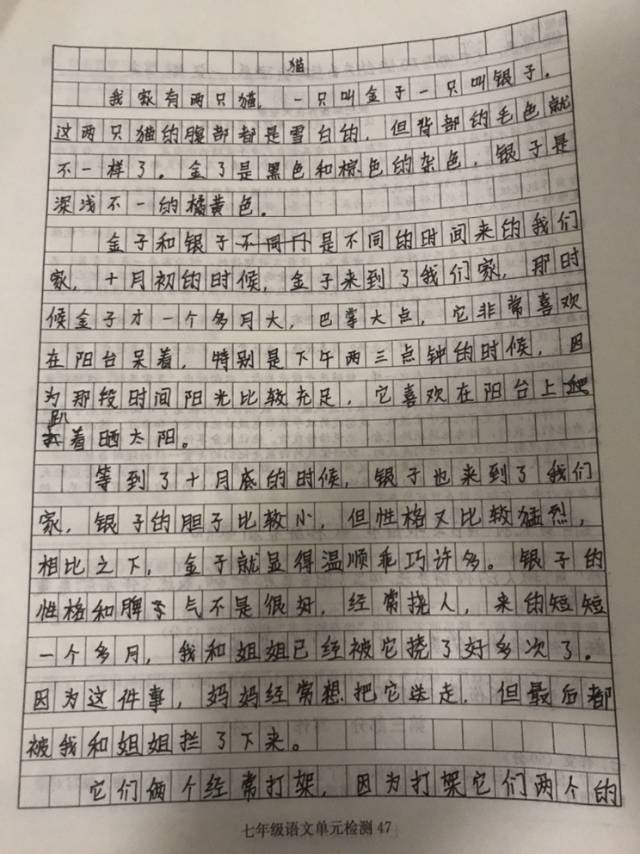 猫
我家有两只猫，一只叫金子一只叫银子。
这两只猫的腹部都是雪白的，但背部的毛色就
不一样了。金了是黑色和棕色的杂色，银子是
深浅不一的橘黄色。
金子和银子不同月是不同的时间来的我们
家，十月初的时候，金子来到了我们家，那时
候金子才一个多月大，巴掌大点，它非常喜欢
在阳台呆着，特别是下午两三点钟的时候，因
为那段时间阳光比较充足，它喜欢在阳台上
趴
着晒太阳。
等到了十月底的时候，银子也来到了我们
家，银子的胆子比较小，但性格又比较猛烈，
相比之下，金子就显得温顺乖巧许多。银子的
性格和脾气不是很好，经常挠人，来的短短
一个多月，我和姐姐已经被它挠了好多次了。
因为这件事，妈妈经常想把它送走，但最后都
被我和姐姐拦了下来。
它们俩个经常打架，因为打架它们两个的
七年级语文单元检测 47